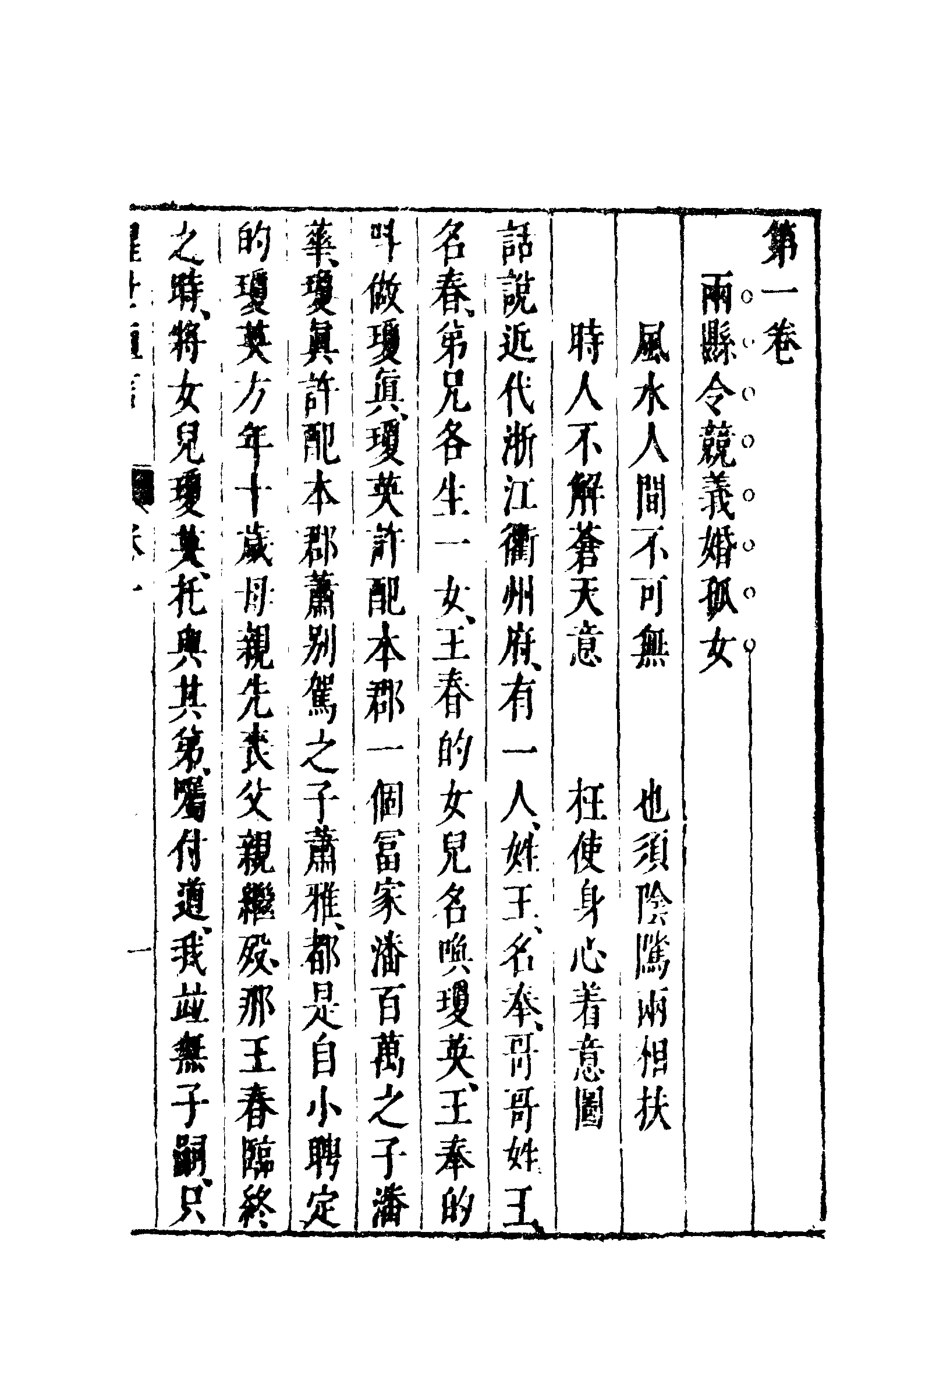 第一卷
兩縣令競義婚孤女
風水人間不可無　也須陰隲兩相扶
時人不解蒼天意　枉使身心着意圖
話說近代浙江衢州府、有一人、姓王、名奉、哥哥姓王、
名春、第兄各生一女、王春的女兒名喚瓊英、王奉的
呌做瓊眞、瓊英許配本郡一個富家潘百萬之子潘
華、瓊眞許配本郡蕭別駕之子蕭雅、都是自小聘定
的瓊英方年十歲母親先喪父親繼歿、那王春臨終
之時、將女兒瓊英、托與其第、囑付道、我並無子嗣、只
醒世恒言　卷一　一